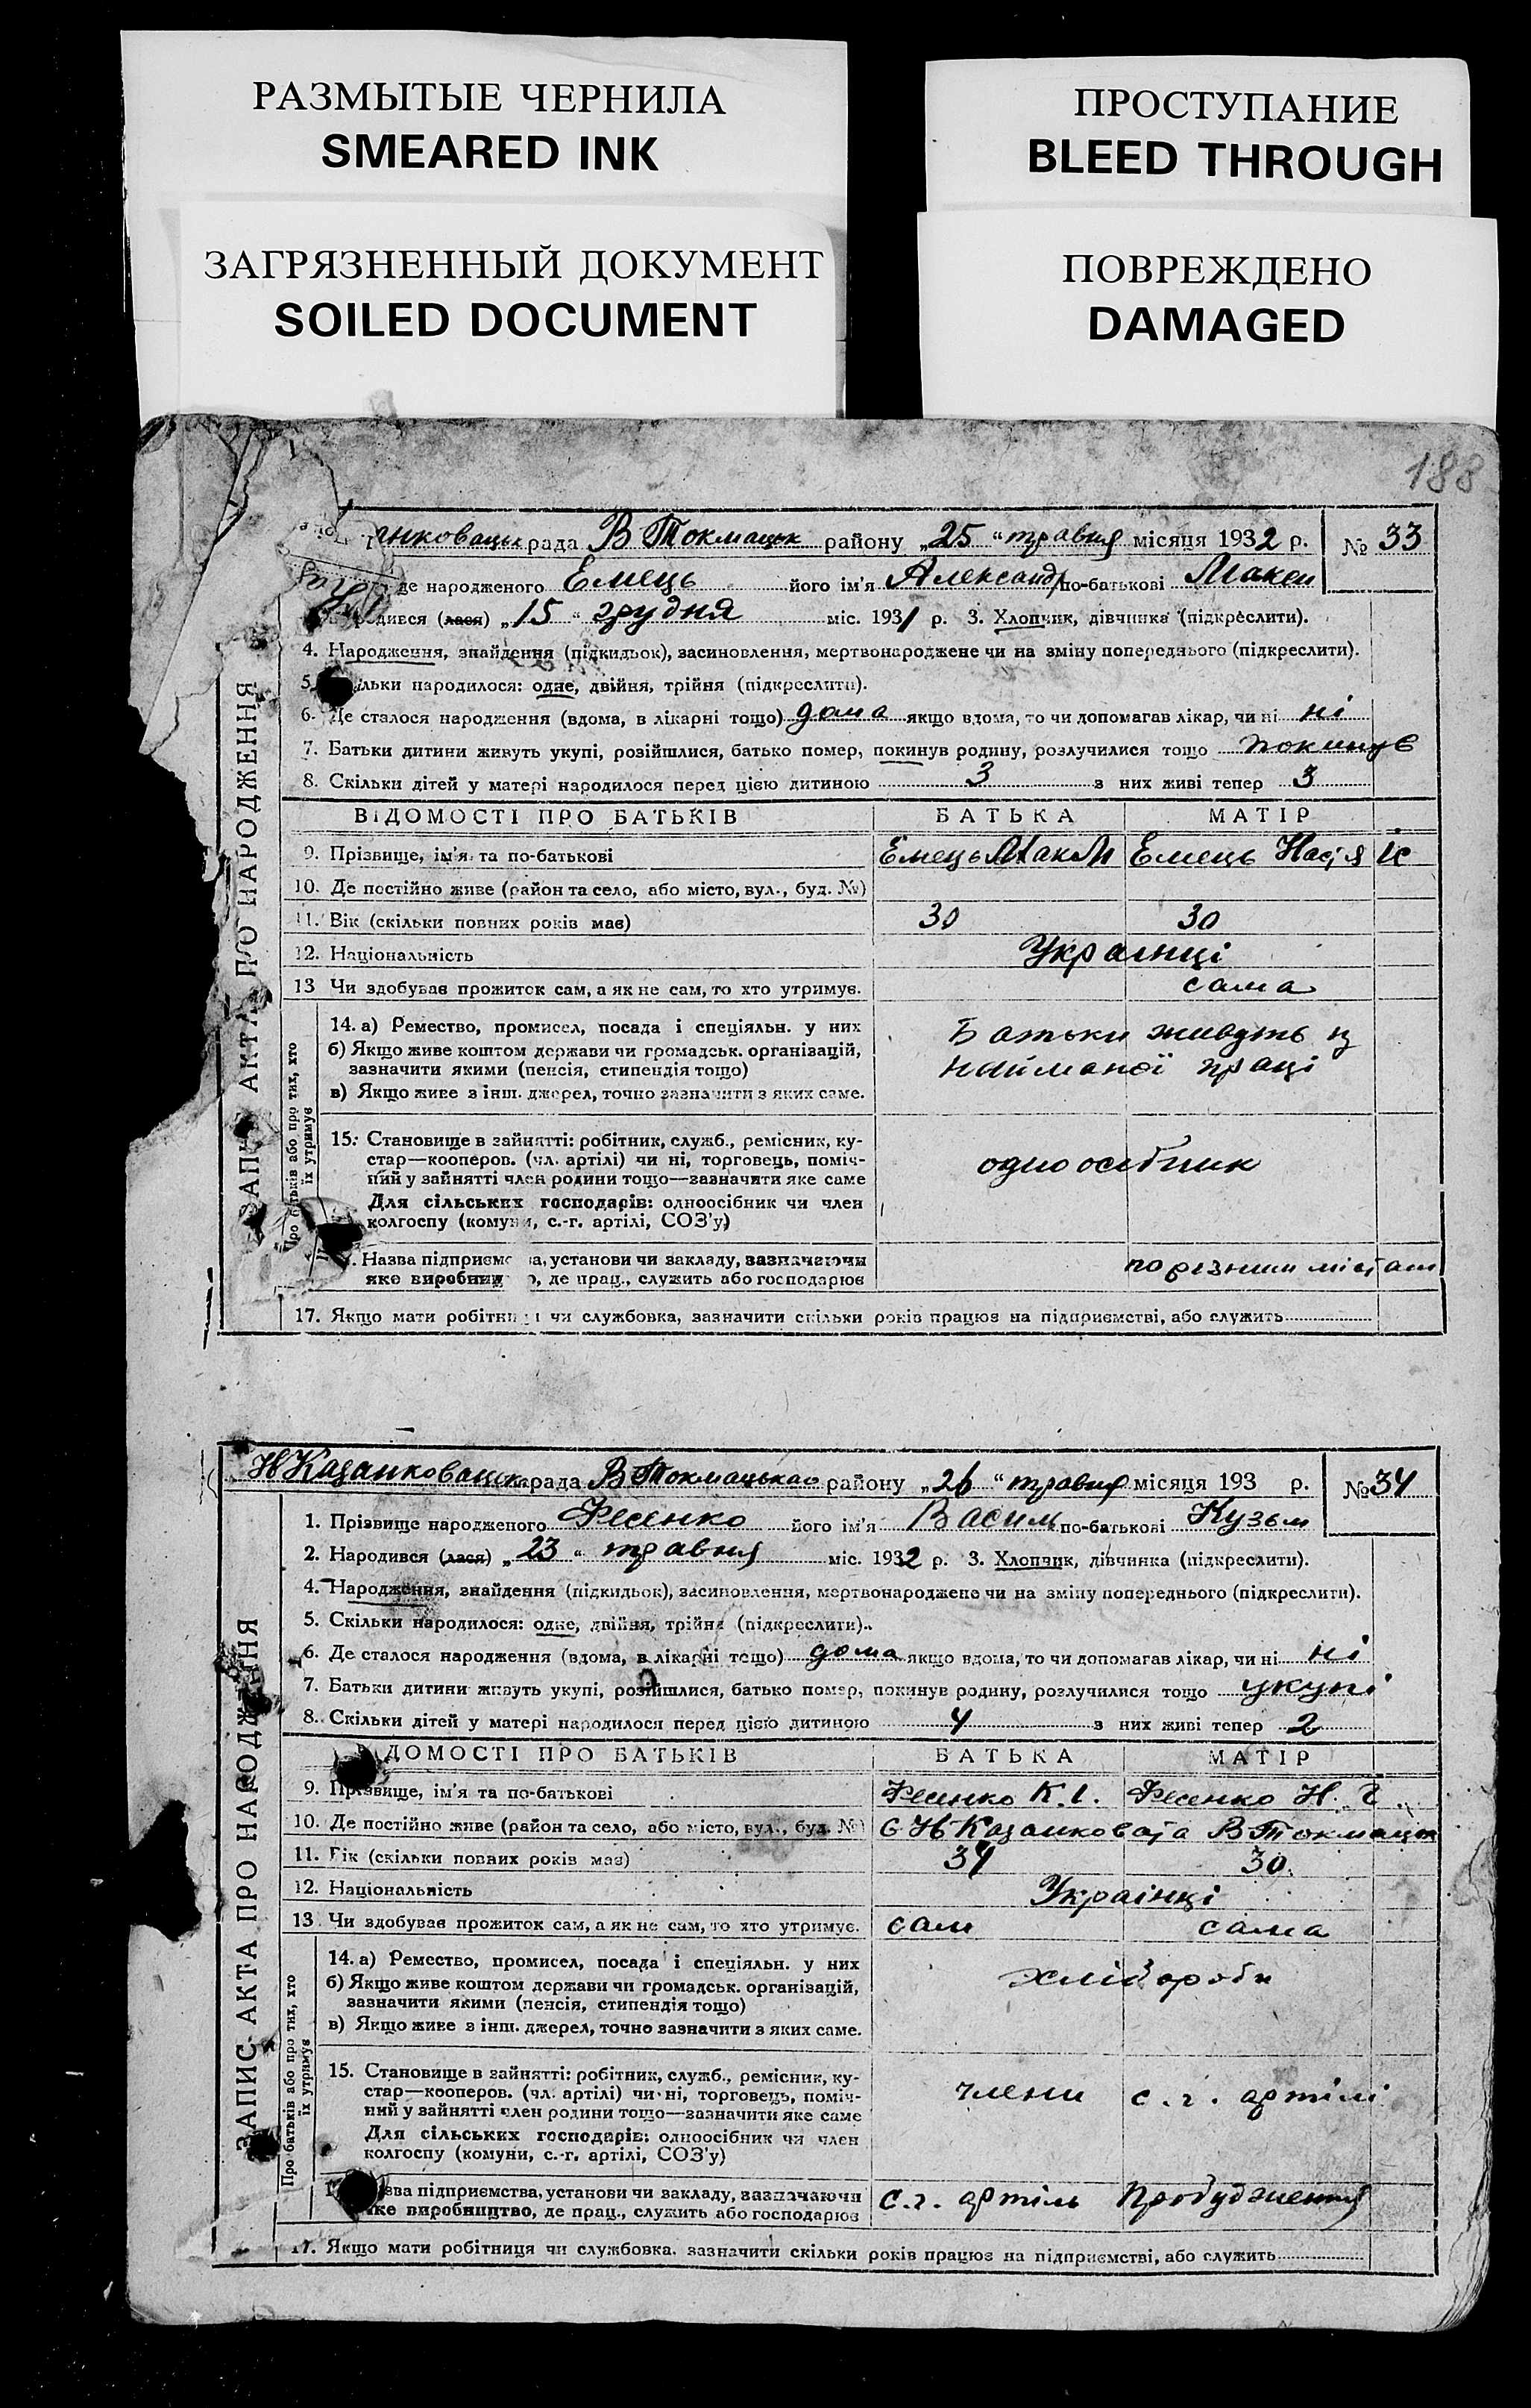 РАЗМЫТЫЕ ЧЕРНИЛА
SMEARED INK
ПРОСТУПАНИЕ
BLEED THROUGH
ЗАГРЯЗНЕННЫЙ ДОКУМЕНТ
SOILED DOCUMENT
ПОВРЕЖДЕНО
DAMAGED
188
рада В Токмацьк району „25“ травня місяця 1932 р. № 33
народженого Ємець його ім'я Александ по-батькові Макси
(лася) „15“ грудня міс. 1931 р. 3. Хлопчик, дівчинка (підкреслити).
4. Народження, знайдення (підкидьок), засиновлення, мертвонароджене чи на зміну попереднього (підкреслити).
5. народилося: одне, двійня, трійня (підкреслити).
6. Де сталося народження (вдома, в лікарні тощо) дома якщо вдома, то чи допомагав лікар, чи ні ні
7. Батьки дитини живуть укупі, розійшлися, батько помер, покинув родину, розлучилися тощо покинув
8. Скільки дітей у матері народилося перед цією дитиною 3 з них живі тепер 3
ВІДОМОСТІ ПРО БАТЬКІВ БАТЬКА МАТІР
9. Прізвище, ім'я та по-батькові Ємець Мак М Ємець Настя Іс
10. Де постійно живе (район та село, або місто, вул., буд. №)
11. Вік (скільки повних років має) 30 30
12. Національність Українці
13 Чи здобував прожиток сам, а як не сам, то хто утримує. сама
ЗАПИС АКТА ПРО НАРОДЖЕННЯ
Про батьків або про тих, хто їх утримує
14. а) Ремество, промисел, посада і спеціяльн. у них Батьки живуть із
б) Якщо живе коштом держави чи громадськ. організацій, найманої праці
зазначити якими (пенсія, стипендія тощо)
в) Якщо живе з інш. джерел, точно зазначити з яких саме.
15. Становище в зайнятті: робітник, служб., ремісник, ку-
стар—кооперов. (чл. артілі) чи ні, торговець, поміч- одноосібник
ний у зайнятті член родини тощо—зазначити яке саме
Для сільських господарів: одноосібник чи член
колгоспу (комуни, с.-г. артілі, СОЗ'у)
Назва підприємства, установи чи закладу, зазначаючи по різним містам
яке виробництво, де прац., служить або господарює
17. Якщо мати робітниця чи службовка, зазначити скільки років працює на підприємстві, або служить
Н Казанковацька рада В Токмацькаго району „26“ травня місяця 193 р. № 34
1. Прізвище народженого Фесенко його ім'я Васим по-батькові Кузьм
2. Народився (лася) „23“ травня міс. 1932 р. 3. Хлопчик, дівчинка (підкреслити).
4. Народження, знайдення (підкидьок), засиновлення, мертвонароджене чи на зміну попереднього (підкреслити).
5. Скільки народилося: одне, двійня, трійня (підкреслити).
6. Де сталося народження (вдома, в лікарні тощо) дома якщо вдома, то чи допомагав лікар, чи ні ні
7. Батьки дитини живуть укупі, розійшлися, батько помер, покинув родину, розлучилися тощо укупі
8. Скільки дітей у матері народилося перед цією дитиною 4 з них живі тепер 2
ВІДОМОСТІ ПРО БАТЬКІВ БАТЬКА МАТІР
9. Прізвище, ім'я та по-батькові Фесенко К.І. Фесенко Н.
10. Де постійно живе (район та село, або місто, вул., буд. №) с Н Казанковата В Токмацьк
11. Вік (скільки повних років має) 34 30
12. Національність Українці
13. Чи здобував прожиток сам, а як не сам, то хто утримує. сам сама
ЗАПИС АКТА ПРО НАРОДЖЕННЯ
Про батьків або про тих, хто їх утримує
14. а) Ремество, промисел, посада і спеціяльн. у них хлібороби
б) Якщо живе коштом держави чи громадськ. організацій,
зазначити якими (пенсія, стипендія тощо)
в) Якщо живе з інш. джерел, точно зазначити з яких саме.
15. Становище в зайнятті: робітник, служб., ремісник, ку-
стар—кооперов. (чл. артілі) чи ні, торговець, поміч- члени с.г. артілі
ний у зайнятті член родини тощо—зазначити яке саме
Для сільських господарів: одноосібник чи член
колгоспу (комуни, с.-г. артілі, СОЗ'у)
Назва підприємства, установи чи закладу, зазначаючи с.г. артіль Пробудження
яке виробництво, де прац., служить або господарює
17. Якщо мати робітниця чи службовка, зазначити скільки років працює на підприємстві, або служить